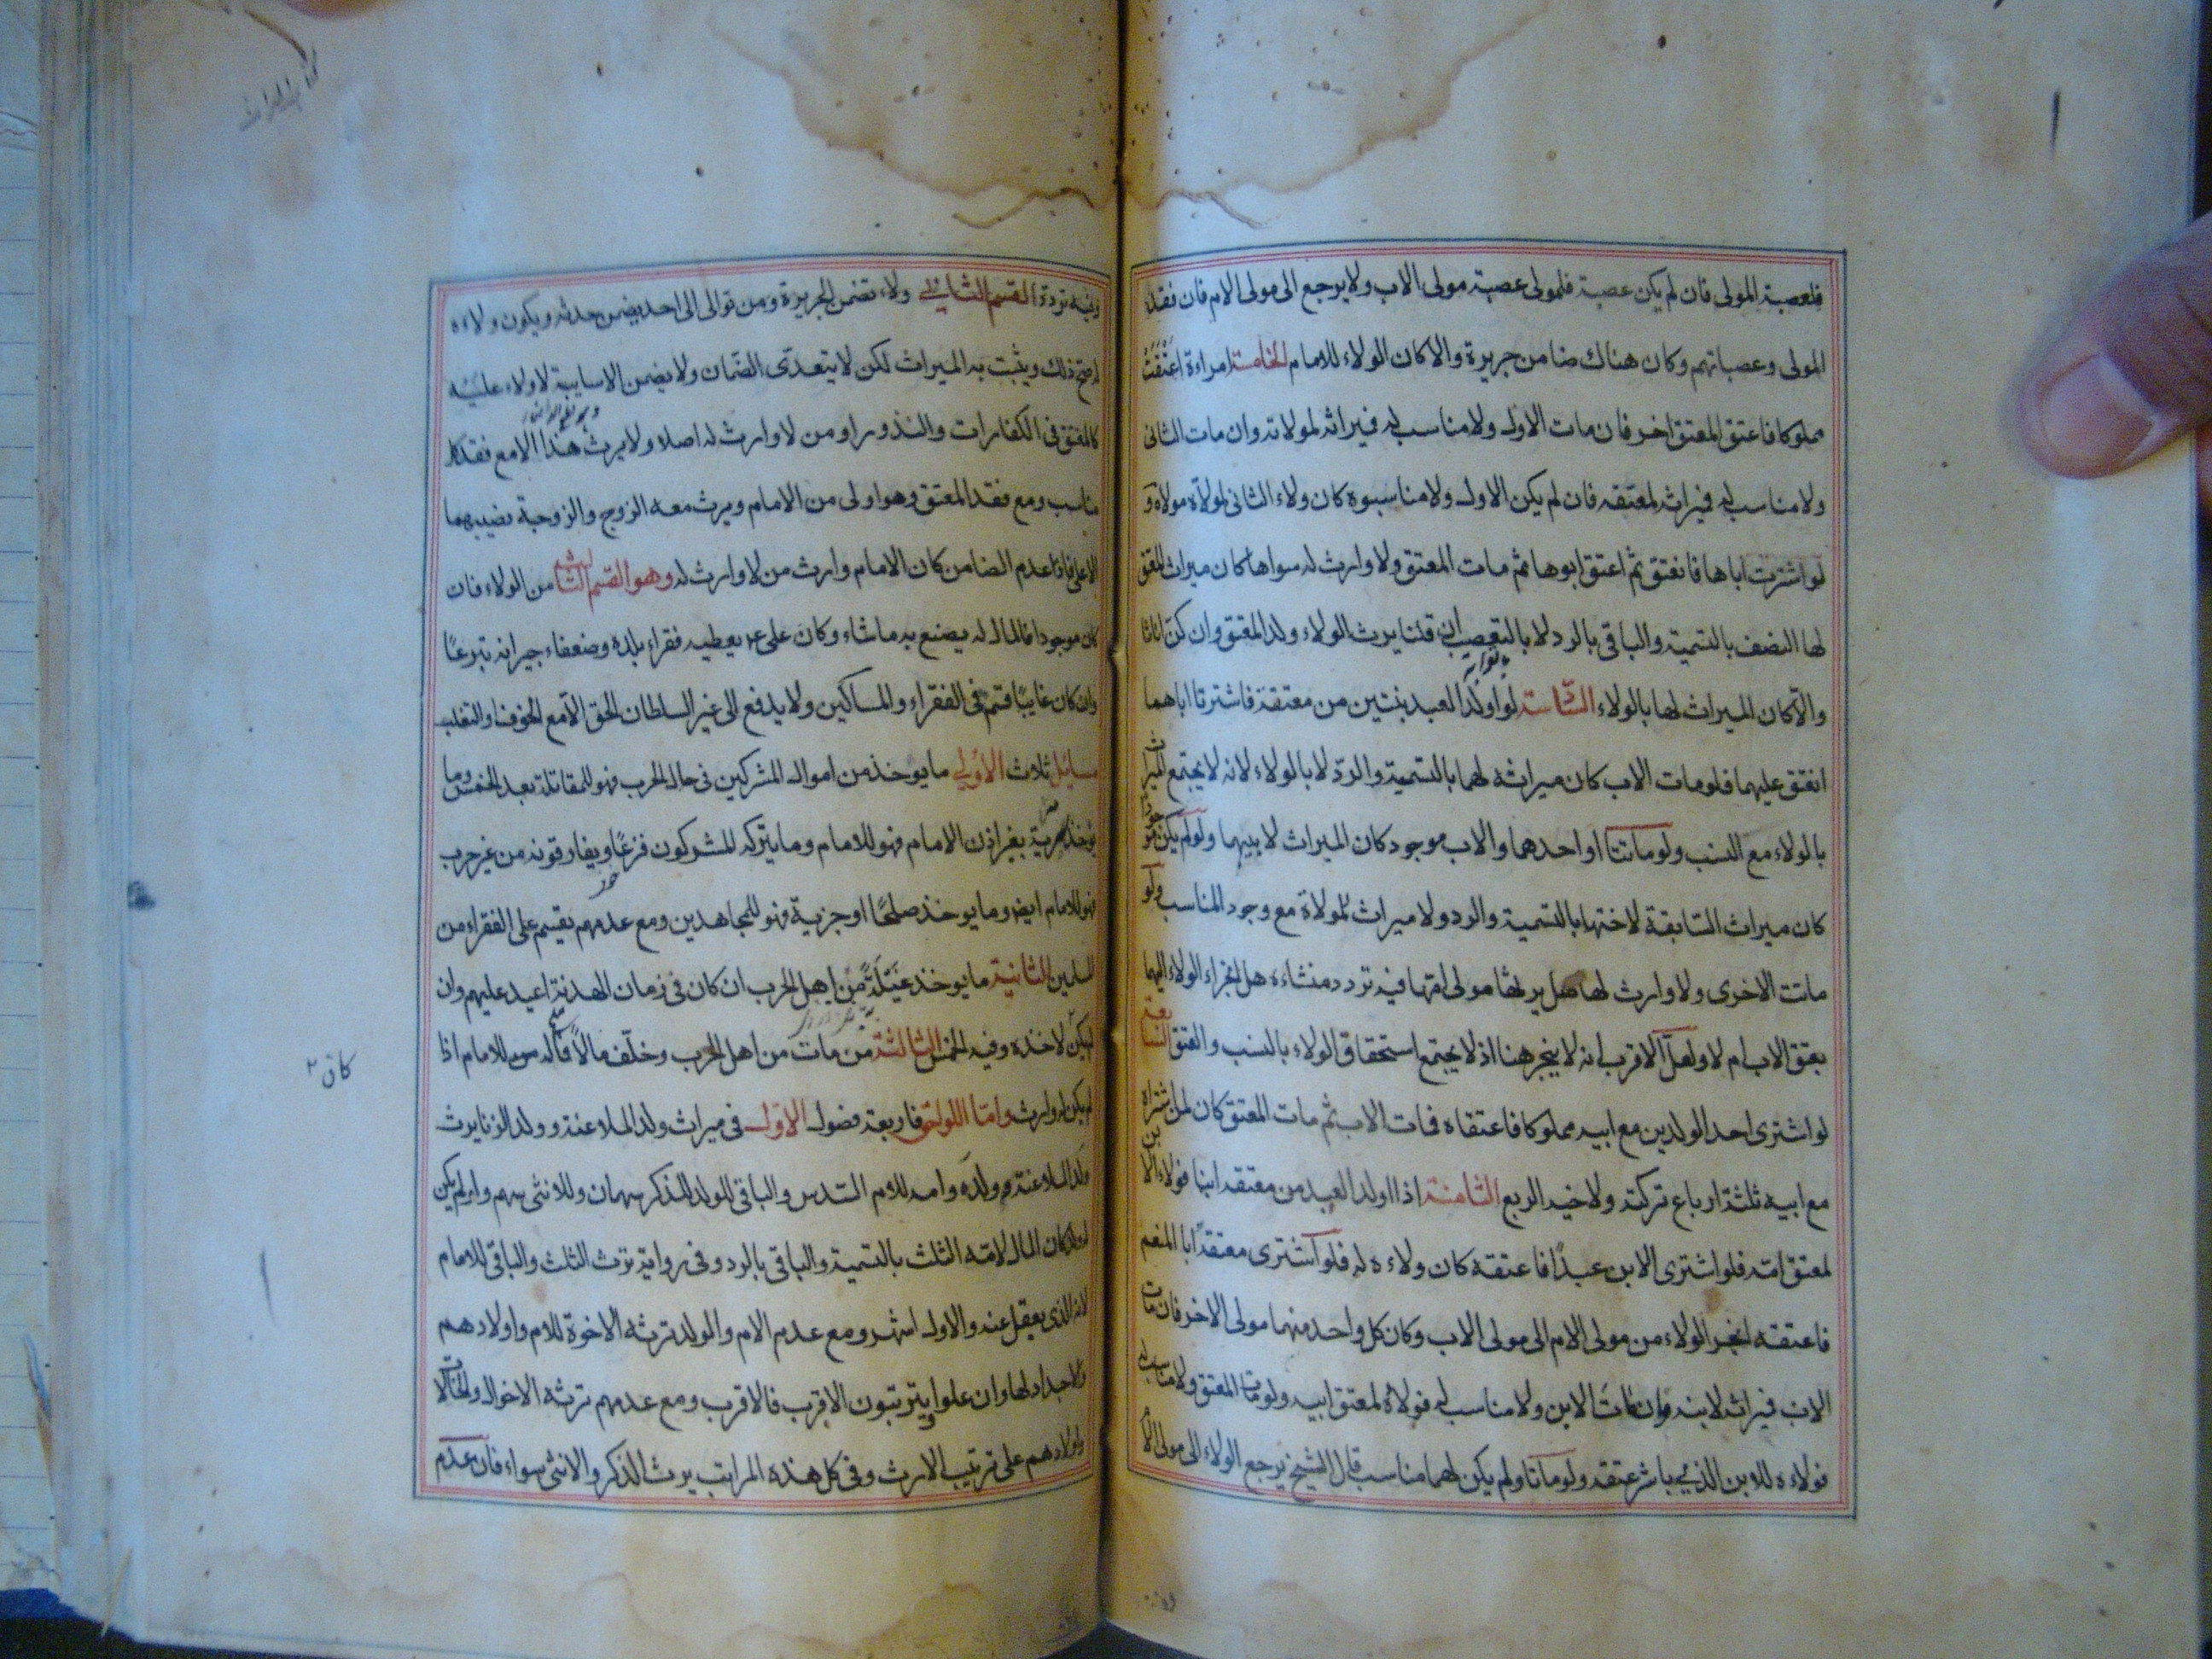 فلعصبة المولى فان لم يكن عصبة فلمولى عصبة مولى الاب ولا يرجع الى مولى الام فان فقد
المولى وعصباتهم وكان هناك ضامن جريرة والا كان الولاء للامام الخامسة امراءة اعتقت
مملوكا فاعتق المعتق اخر فان مات الاول ولا مناسب له فميراثه لمولاته وان مات الثانى
ولا مناسب له فميراثه لمعتقه فان لم يكن الاول ولا مناسبوه كان ولاء الثانى لمولاة مولاه و
لو اشترت اباها فانعتق ثم اعتق ابوها ثم مات المعتق ولا وارث له سواها كان ميراث المعتق
لها النصف بالتسمية والباقى بالرد لا بالتعصيب ان قلنا يرث الولاء ولد المعتق وان كن اناثا
والا كان الميراث لها بالولاء السادسة لو اولد العبد بنتين من معتقة فاشترتا اباهما
انعتق عليهما فلو مات الاب كان ميراثه لهما بالتسمية والرد لا بالولاء لانه لا يجتمع الميراث
بالولاء مع النسب ولو ماتتا او احدهما والاب موجود كان الميراث لابيهما ولو لم يكن موجودا
كان ميراث السابقة لاختها بالتسمية والرد ولا ميراث للمولاة مع وجود المناسب ولو
ماتت الاخرى ولا وارث لها هل يرثها مولى امها فيه تردد منشاءه هل انجراء الولاء اليهما
بعتق الاب ام لا ولعل الاقرب انه لا ينجر هنا اذ لا يجتمع استحقاق الولاء بالنسب والعتق السابعة
لو اشترى احد الولدين مع ابيه مملوكا فاعتقاه فمات الاب ثم مات المعتق كان لمن اشتراه
مع ابيه ثلثة ارباع تركته ولاخيه الربع الثامنة اذا اولد العبد من معتقة ابنا فولاء الابن
لمعتق امه فلو اشترى الابن عبدا فاعتقه كان ولاءه له فلو اشترى معتقه ابا المنعم
فاعتقه انجر الولاء من مولى الام الى مولى الاب وكان كل واحد منهما مولى الاخر فان مات
الاب فميراثه لابنه فان مات الابن ولا مناسب له فولاءه لمعتق ابيه ولو مات المعتق ولا مناسب له
فولاءه للابن الذي باشر عتقه ولو ماتا ولم يكن لهما مناسب قال الشيخ يرجع الولاء الى مولى الام
وفيه تردد القسم الثاني ولاء تضمن الجريرة ومن توالى الى احد يضمن حدثه ويكون ولاءه
له صح ذلك ويثبت به الميراث لكن لا يتعدى الضمان ولا يضمن الا سايبة لا ولاء عليه
كالمعتق فى الكفارات والنذور او من لا وارث له اصلا ولا يرث هذا الا مع فقد كل
مناسب ومع فقد المعتق وهو اولى من الامام ويرث معه الزوج والزوجة نصيبهما
الاعلى فاذا عدم الضامن كان الامام وارث من لا وارث له وهو القسم الثالث من الولاء فان
كان موجودا فالمال له يصنع به ما شاء وكان على ع يعطيه فقراء بلده وضعفاء جيرانه تبرعا
وان كان غايبا قسم فى الفقراء والمساكين ولا يدفع الى غير السلطان الحق الا مع الخوف او التغلب
مسايل ثلاث الاولي ما يوخذ من اموال المشركين فى حال الحرب فهو للمقاتلة بعد الخمس وما
يوخذه سرية بغير اذن الامام فهو للامام وما يتركه المشركون فزعا ويفارقونه من غير حرب
فهو للامام ايضا وما يوخذ صلحا او جزية فهو للمجاهدين ومع عدمهم يقسم على الفقراء من
المسلمين الثانية ما يوخذ غيلة من اهل الحرب ان كان فى زمان الهدنة اعيد عليهم وان
لم يكن لاخذه وفيه الخمس الثالثة من مات من اهل الحرب وخلف مالا فماله للامام اذا
لم يكن له وارث واما اللواحق فاربعة فصول الاول فى ميراث ولد الملاعنة وولد الزنا يرث
ولد الملاعنة ولده وامه للام السدس والباقى للولد للذكر سهمان وللانثى سهم ولو لم يكن
له ولد كان المال لامه الثلث بالتسمية والباقى بالرد وفى رواية ترث الثلث والباقى للامام
لانه الذى يعقل عنه والاول اشهر ومع عدم الام والولد ترثه الاخوة للام واولادهم
والاجداد لها وان علوا ويترتبون الاقرب فالاقرب ومع عدمهم ترثه الاخوال والخالات
واولادهم على ترتيب الارث وفى كل هذه المراتب يرث الذكر والانثى سواء فان عدم
كان ٢